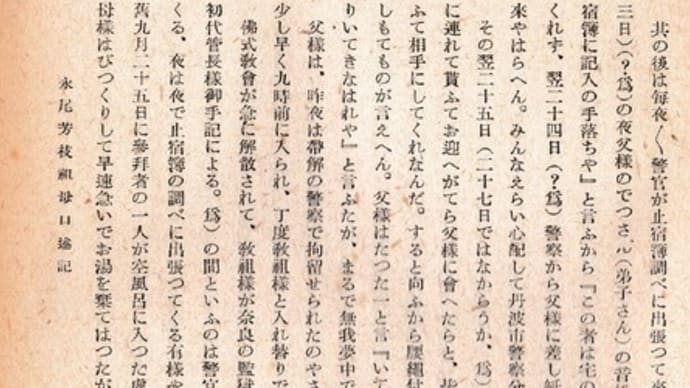 其の後は毎夜〱警官が止宿簿調べに出張つて
三日)(?爲)の夜父様のでつさん(弟子さん)の音
宿簿に記入の手落ちや』と言ふから『この者は宅の
くれず、翌二十四日(?爲)警察から父様に差し紙
來やはらへん。みんなえらい心配して丹波市警察
その翌二十五日(二十七日ではなからうか、爲)
に連れて貰ふてお迎へがてら父様に會へたらと、
ふて相手にしてくれなんだ。すると向ふから腰繩付
しもてものが言えへん。父様はたつた一と言『いて
りいてきなはれや』と言ふたが、まるで無我夢中で
父様は、昨夜は帶解の警察で拘留せられたのやさ
少し早く九時前に入られ、丁度敎祖様と入れ替りで
佛式敎會が急に解散されて、敎祖様が奈良の監獄
初代管長様御手記による。爲)の間といふのは警官
くる、夜は夜で止宿簿の調べに出張つてくる有様や
舊九月二十五日に參拜者の一人が空風呂に入つた處
母様はびつくりして早速急いでお湯を棄てはつたが
永尾芳枝祖母口述記